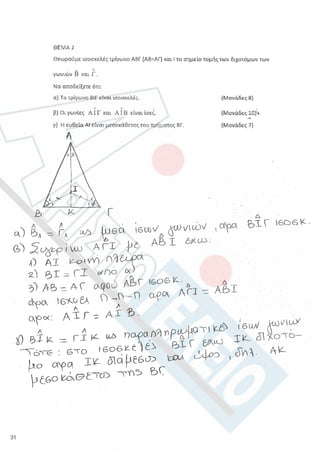 ΘΕΜΑ 2
Θεωρούμε ισοσκελές τρίγωνο ΑΒΓ (ΑΒ=ΑΓ) και Ι το σημείο τομής των διχοτόμων των
γωνιών Β̂ και Γ̂.
Να αποδείξετε ότι:
α) Το τρίγωνο ΒΙΓ είναι ισοσκελές. (Μονάδες 8)
β) Οι γωνίες ΑÎΓ και ΑÎΒ είναι ίσες. (Μονάδες 10)
γ) Η ευθεία ΑΙ είναι μεσοκάθετος του τμήματος ΒΓ. (Μονάδες 7)
Α
Ι
Β Κ Γ
α) Β̂₁ = Γ̂₁ ως μισά ίσων γωνιών, άρα ΒΙΓ ισοσκ.
β) Συγκρίνω ΑΓΙ με ΑΒΙ έχω:
1) ΑΙ κοινή πλευρά
2) ΒΙ = ΓΙ από α)
3) ΑΒ = ΑΓ αφού ΑΒΓ ισοσκ.
άρα ισχύει Π-Π-Π άρα ΑΓΙ = ΑΒΙ
άρα: ΑÎΓ = ΑÎΒ.
γ) ΒÎΚ = ΓÎΚ ως παραπληρωματικές ίσων γωνιών
Τότε: στο ισοσκελές ΒΙΓ έχω ΙΚ διχοτό-
μο άρα ΙΚ διάμεσος και ύψος, δηλ. ΑΚ
μεσοκάθετος της ΒΓ.
31